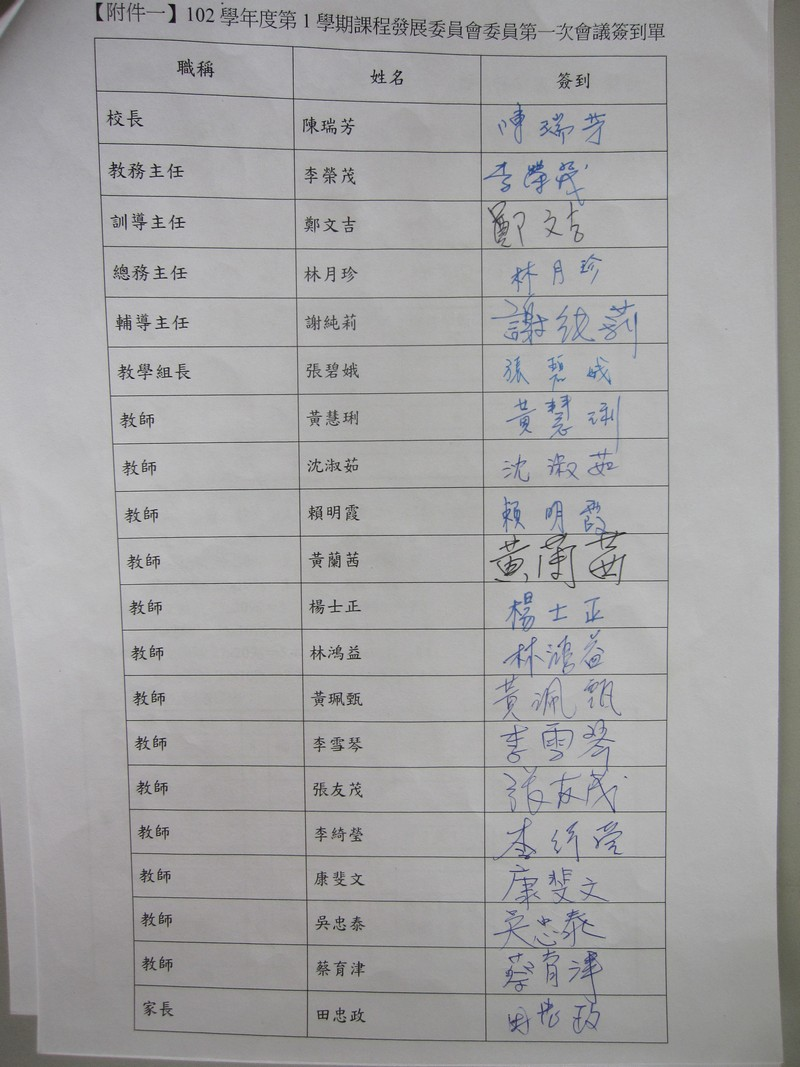 【附件一】102 學年度第 1 學期課程發展委員會委員第一次會議簽到單
職稱 姓名 簽到
校長 陳瑞芳 陳瑞芳
教務主任 李榮茂 李榮茂
訓導主任 鄭文吉 鄭文吉
總務主任 林月珍 林月珍
輔導主任 謝純莉 謝純莉
教學組長 張碧娥 張碧娥
教師 黃慧琍 黃慧琍
教師 沈淑茹 沈淑茹
教師 賴明霞 賴明霞
教師 黃蘭茜 黃蘭茜
教師 楊士正 楊士正
教師 林鴻益 林鴻益
教師 黃珮甄 黃珮甄
教師 李雪琴 李雪琴
教師 張友茂 張友茂
教師 李綺瑩 李綺瑩
教師 康斐文 康斐文
教師 吳忠泰 吳忠泰
教師 蔡育津 蔡育津
家長 田忠政 田忠政